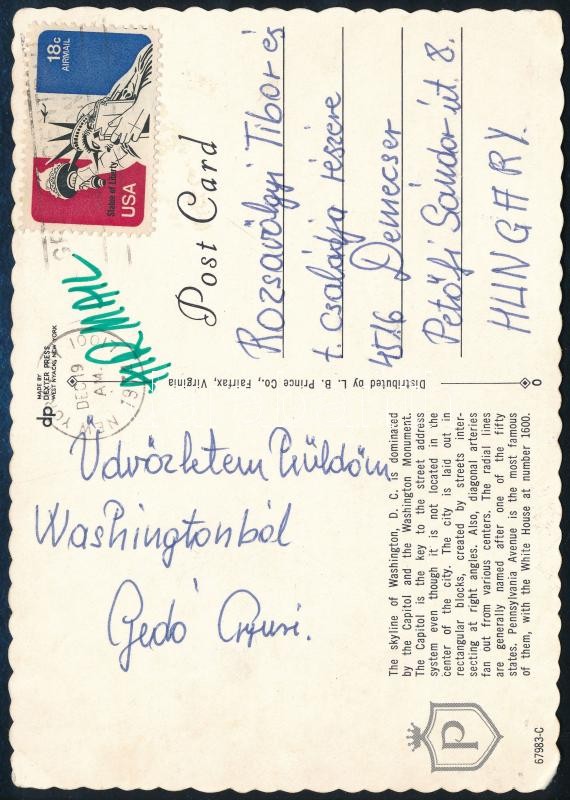 Üdvözletem küldöm
Washingtonból
Gedó Gyusi.
The skyline of Washington, D. C. is dominated
by the Capitol and the Washington Monument.
The Capitol is the key to the street address
system even though it is not located in the
center of the city. The city is laid out in
rectangular blocks, created by streets inter-
secting at right angles. Also, diagonal arteries
fan out from various centers. The radial lines
are generally named after one of the fifty
states. Pennsylvania Avenue is the most famous
of them, with the White House at number 1600.
P
67983-C
dp MADE BY
DEXTER PRESS
WEST NYACK, NEW YORK
Distributed by L. B. Prince Co., Fairfax, Virginia
Post Card
AIR MAIL
NEW YO
DEC 19
AM
197
1001
18c
AIRMAIL
Statue of Liberty
USA
Rozsavölgyi Tibor és
t. családja részére
4516 Demecser
Petőfi Sándor út. 8.
HUNGARY.